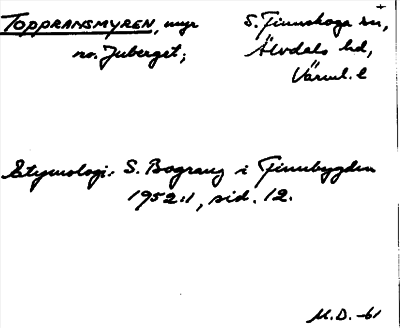 TOPPRANSMYREN, myr
no. Juberget;
S. Finnskoga sn,
Älvdals hd,
Värml. l
Etymologi: S. Bograng i Finnbygden
1952:1, sid. 12.
M.D. -61